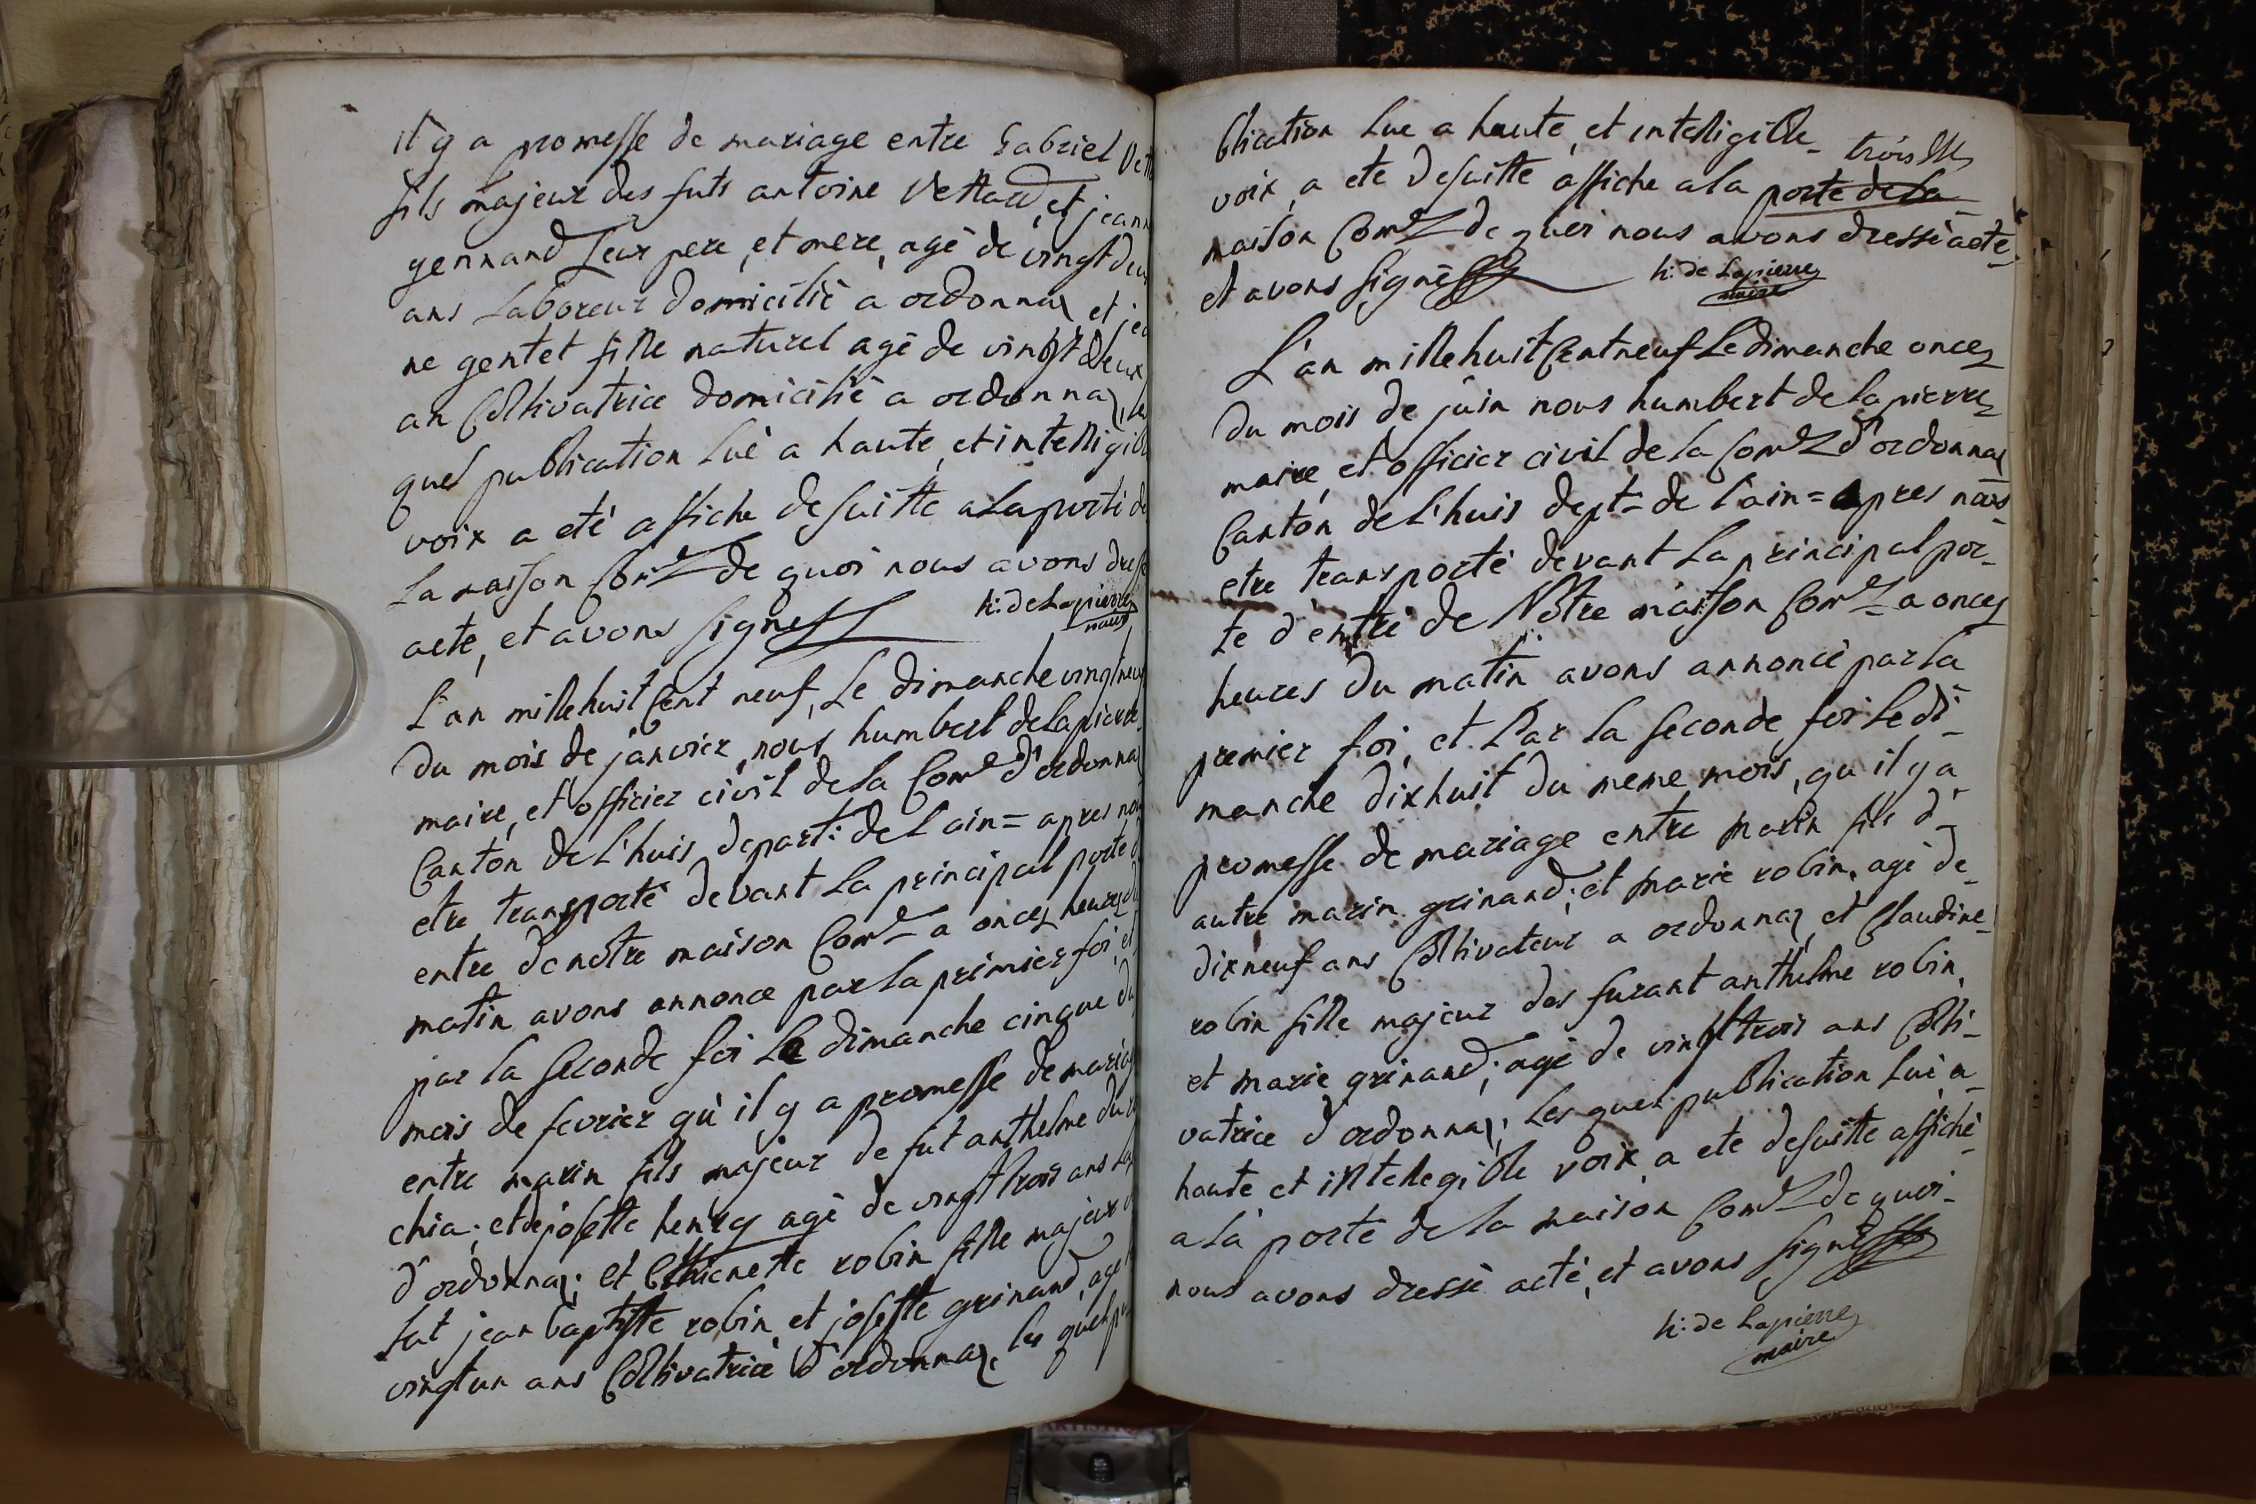 il y a promesse de mariage entre Gabriel
fils majeur des futs antoine Vettard, et jeann
gennand Leur pere, et mere, agé de vingt deu
ans Laboreur domicilié a ordonnaz et jea
ne gentet fille naturel agé de vingt deux
an Coltivatrice domicilié a ordonnaz, les
quel publication Lué a haute, et intelligibl
voix a eté affiche desuitte a La porte de
La maison Comle de quoi nous avons dresse
acte, et avons signe
h: de Lapierre
maire
L'an mille huit Cent neuf, Le dimanche vingt neuf
du mois de janvier, nous humbert de Lapierre
maire, et officier civil de La Comle d'ordonnaz
Canton de L'huis depart: de L'ain = apres nou
etre transporté devant La principal porte d
entre de nôtre maison Comle a onces heures du
matin avons annonce par La primier foi, et
par la seconde foi Le dimanche cinque du
mois de fevrier qu'il y a promesse de mariag
entre marin fils majeur de fut anthelme du
chia; et de josette henry agé de vingt trois ans La
d'ordonnaz; et Ethienette robin fille majeur
fut jean baptiste robin, et josette grinand, age
vingt un ans Coltivatrice d'ordonnaz, les quel pu
blication Lue a haute, et intelligible trois
voix, a ete desuitte affiche a La porte de La
maison Comle de quoi nous avons dressé acte,
et avons signé
h: de Lapierre
maire
L'an mille huit Cent neuf Le dimanche onces
du mois de juin nous humbert de Lapierre
maire, et officier civil de La Comle d'ordonnaz
Canton de L'huis dept= de L'ain = apres nous
etre transporté devant La principal por-
te d'entré de Nôtre maison Comle a onces
heures du matin avons annoncé par La
premier foi, et Par La seconde foi Le di-
manche dixhuit du meme mois, qu'il y a
promesse de mariage entre marin fils d'
autre marin grinand; et marie robin, agé de
dixneuf ans Coltivateur a ordonnaz, et Claudine
robin fille majeur des furant anthelme robin,
et marie grinand; agé de vingt trois ans Colti-
vatrice d'ordonnaz; Les quel publication Lué a
haute et intelegible voix, a ete desuitte affiché
a La porte de La maison Comle de quoi
nous avons dressé acté, et avons signé
h: de Lapierre
maire